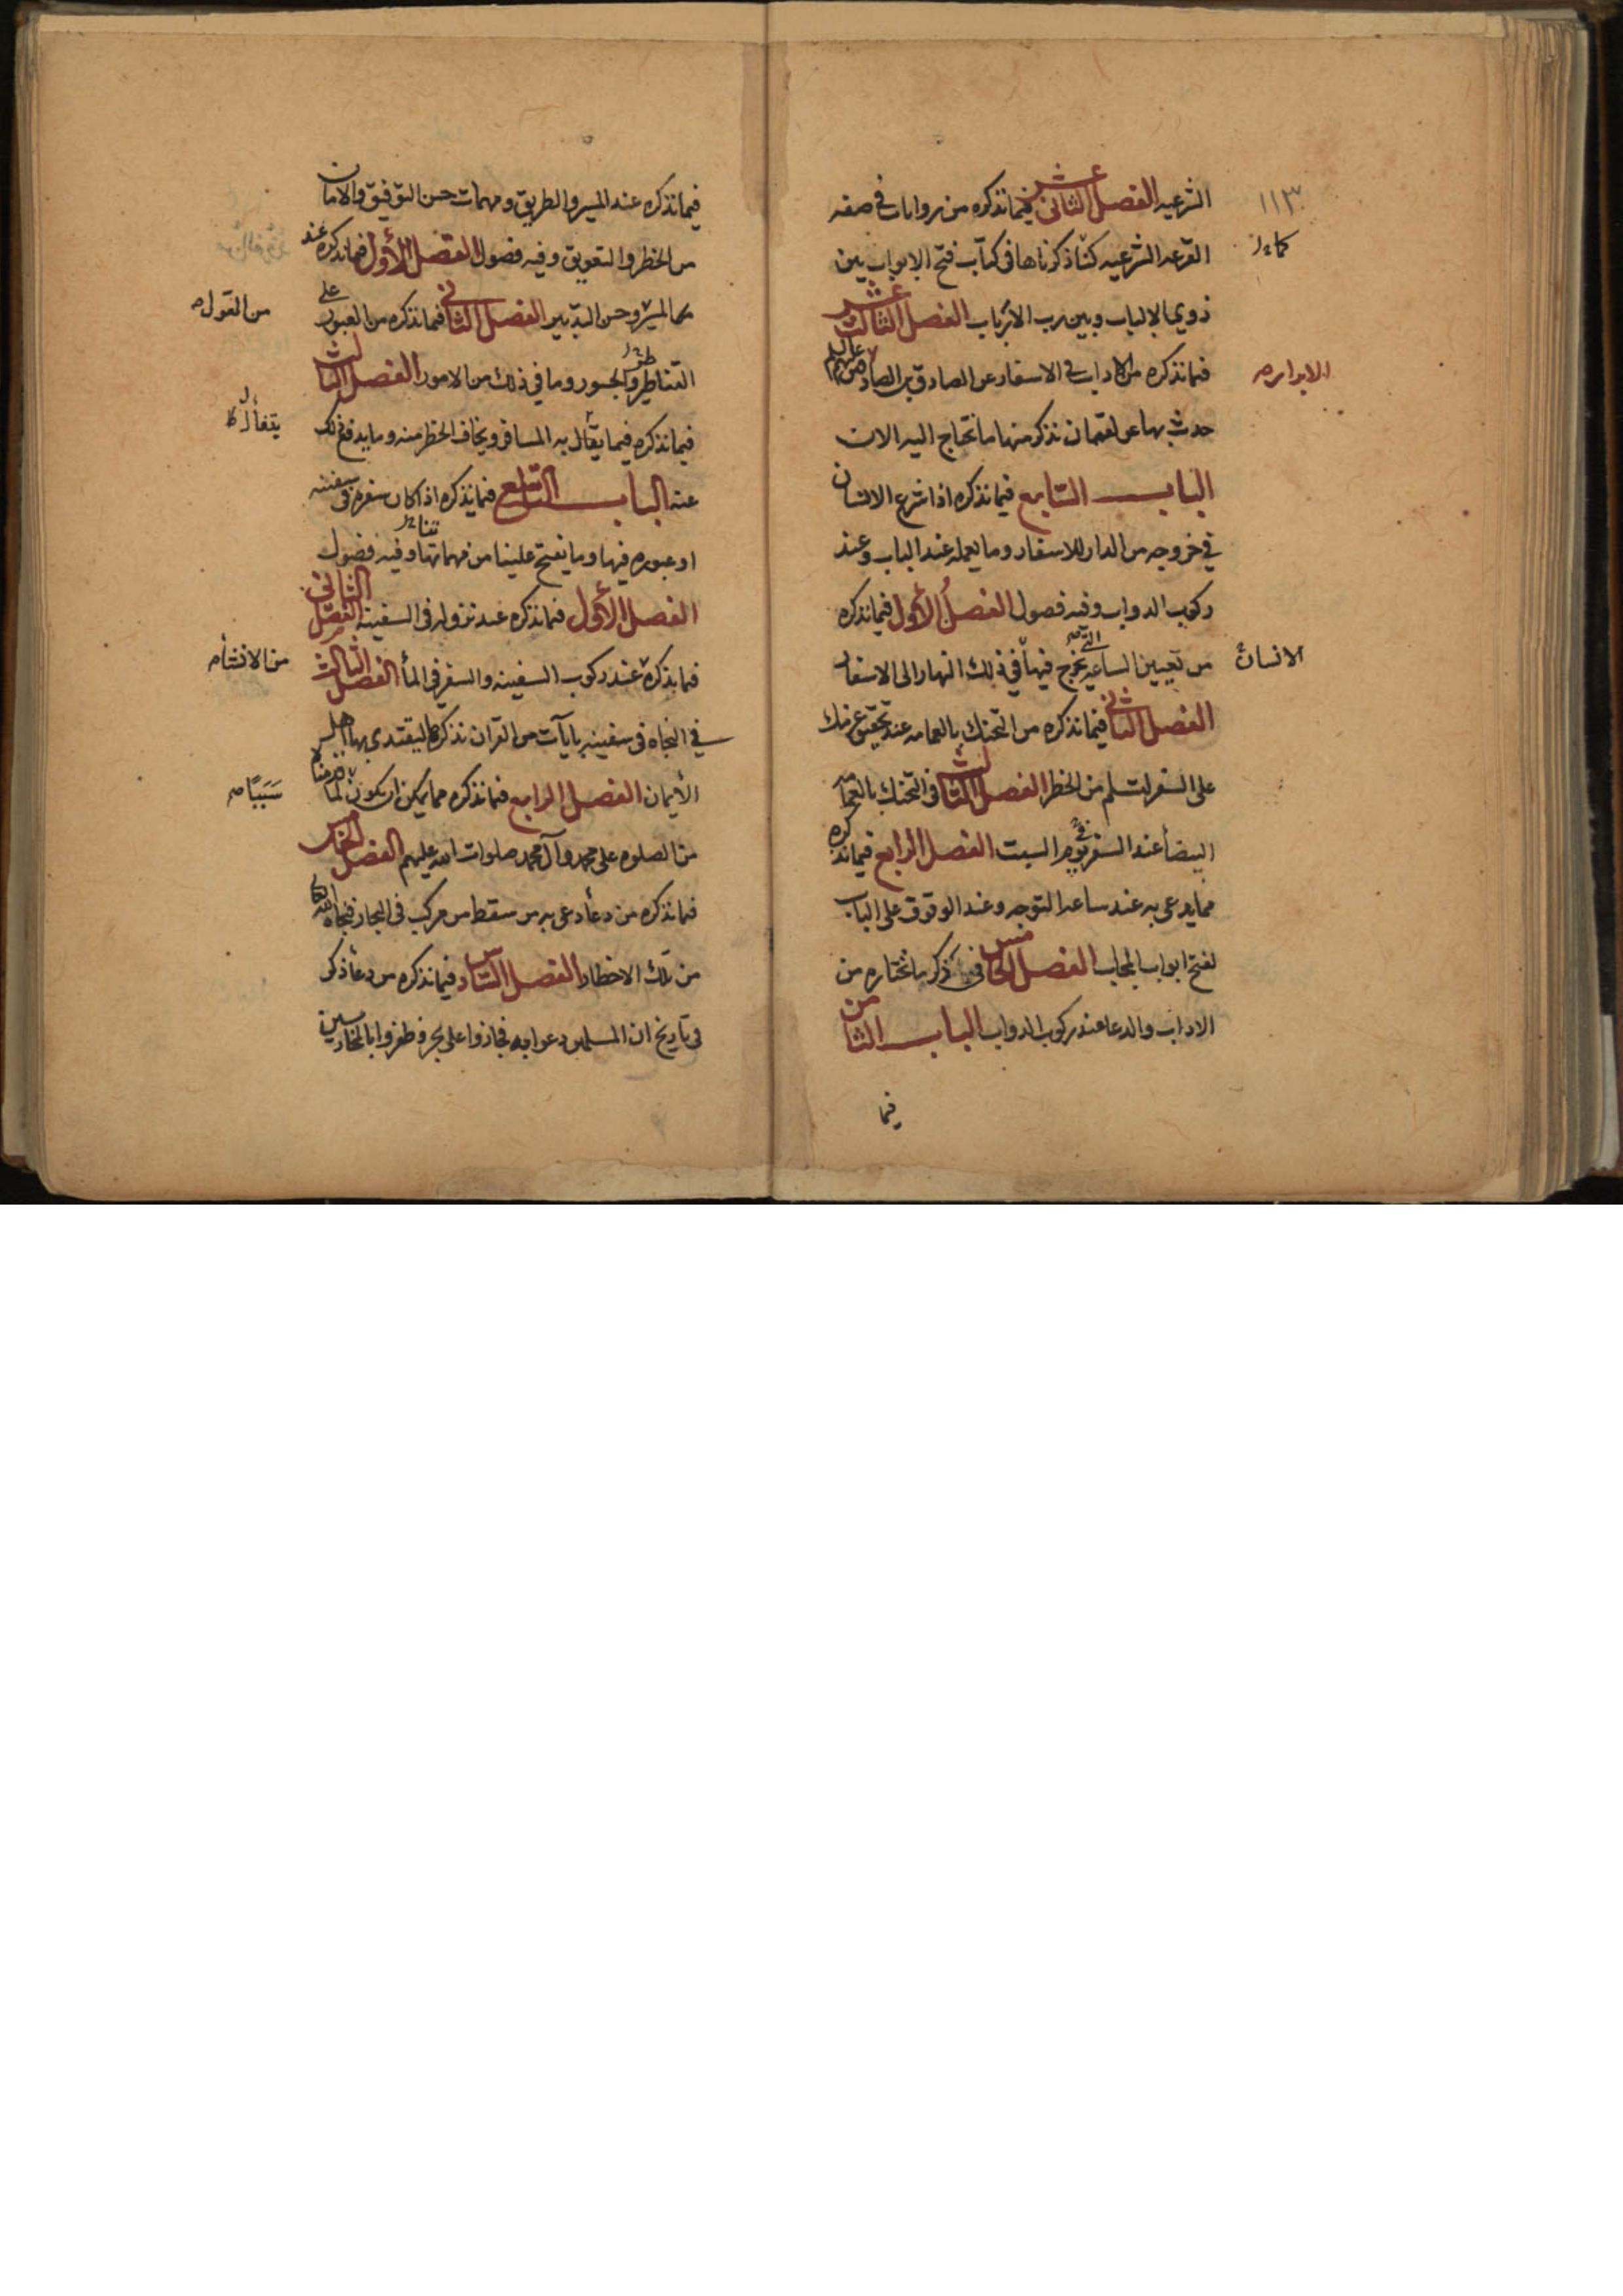 ١١٣
الشرعيه الفصل الثانى عشر فيما نذكره من روايات فى صفه
القرعه الشرعيه كنا ذكرناها فى كتاب فتح الابواب بين
ذوى الالباب وبين رب الارباب الفصل الثالث عشر
فيما نذكره من الاداب فى الاسفار عن الصادق بن الصادقين عليهم السلم
حدث بها عن لقمان نذكر منها ما نحتاج اليه الان
الباب السابع فيما نذكره اذا شرع الانسان
فى خروجه من الدار للاسفار وما يعمله عند الباب وعند
ركوب الدواب وفيه فصول الفصل الأول فيما نذكره
من تعيين الساعه التى يخرج فيها فى ذلك النهار الى الاسفار
الفصل الثانى فيما نذكره من التحنك بالعمامه عند تحقيق عزمك
على السفر لتسلم من الخطر الفصل الثالث فى التحنك بالعمامه
البيضأ عند السفر فى يوم السبت الفصل الرابع فيما نذكره
مما يدعى به عند ساعه التوجه وعند الوقوف على الباب
لفتح ابواب المحاب الفصل الخامس فى ذكر ما نختاره من
الاداب والدعا عند ركوب الدواب الباب الثامن
فيما
الانسان
فيما نذكره عند المسير والطريق ومهمات حسن التوفيق والامان
من الخطر والتعويق وفيه فصول الفصل الأول فيما نذكره عند
المسير وحسن التدبير الفصل الثانى فيما نذكره من العبور على
القناطر والجسور وما فى ذلك من الامور الفصل الثالث
فيما نذكره فيما يتفأل به المسافر ويخاف الخطر منه وما يدفع ذلك
عنه الباب التاسع فيما نذكره اذا كان سفره فى سفينه
او عبوره فيها وما يفتح علينا من مهماتها وفيه فصول
الفصل الأول فيما نذكره عند نزوله فى السفينه الفصل الثانى
فيما نذكره عند ركوب السفينه والسفر فى المأ الفصل الثالث
فى النجاه فى سفينه بايآت من القران نذكرها ليقتدى بها اهل
الأيمان الفصل الرابع فيما نذكره مما يمكن ان يكون
من الصلوه على محمد وآل محمد صلوات الله عليهم الفصل الخامس
فيما نذكره من دعأ دعى به من سقط من مركب فى البحار فنجاه الله
من تلك الاخطار الفصل السادس فيما نذكره من دعأ ذكر
فى تاريخ ان المسلمين دعوا به فجازوا على بحر وظفروا بالمحاربين
من القول
يتفأل
من الانشأ
سَبَبًا